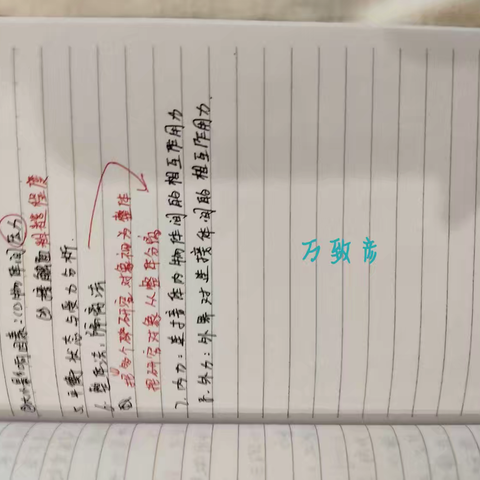 ③大小影响因素:(1)物体间压力
(2)接触面粗糙程度
5.平衡状态与受力分析.
6.整体法,隔离法
把多个研究对象视为整体
把研究对象从整体分离
7.内力:连接体内物体间的相互作用力
8.外力:外界对连接体间的相互作用力.
万致彦